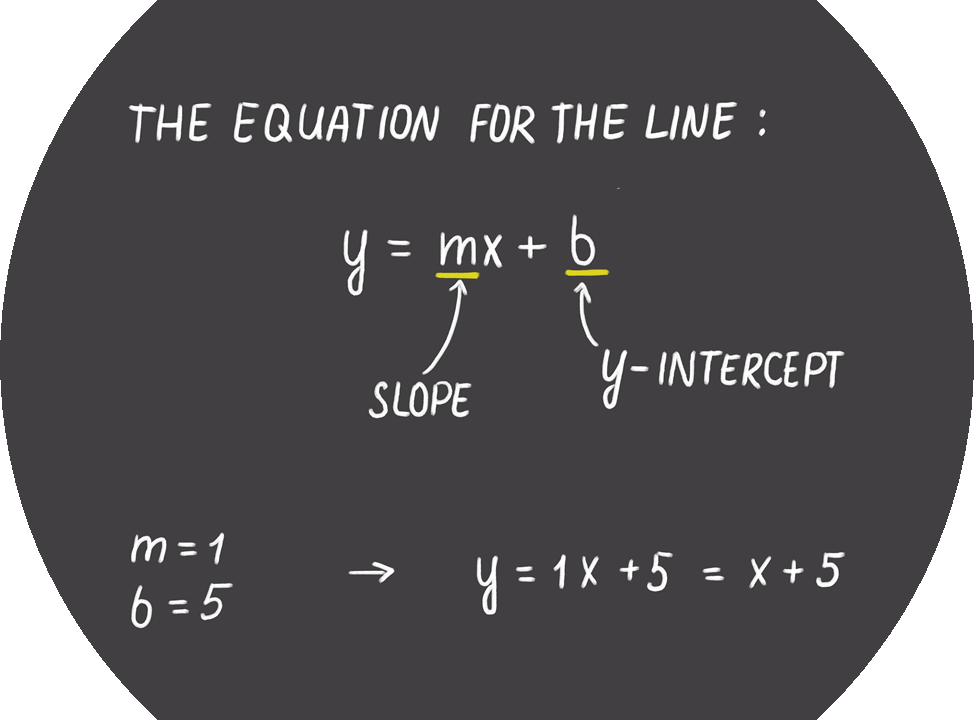 THE EQUATION FOR THE LINE :
y = mx + b
SLOPE
y-INTERCEPT
m = 1
b = 5
→ y = 1x + 5 = x + 5